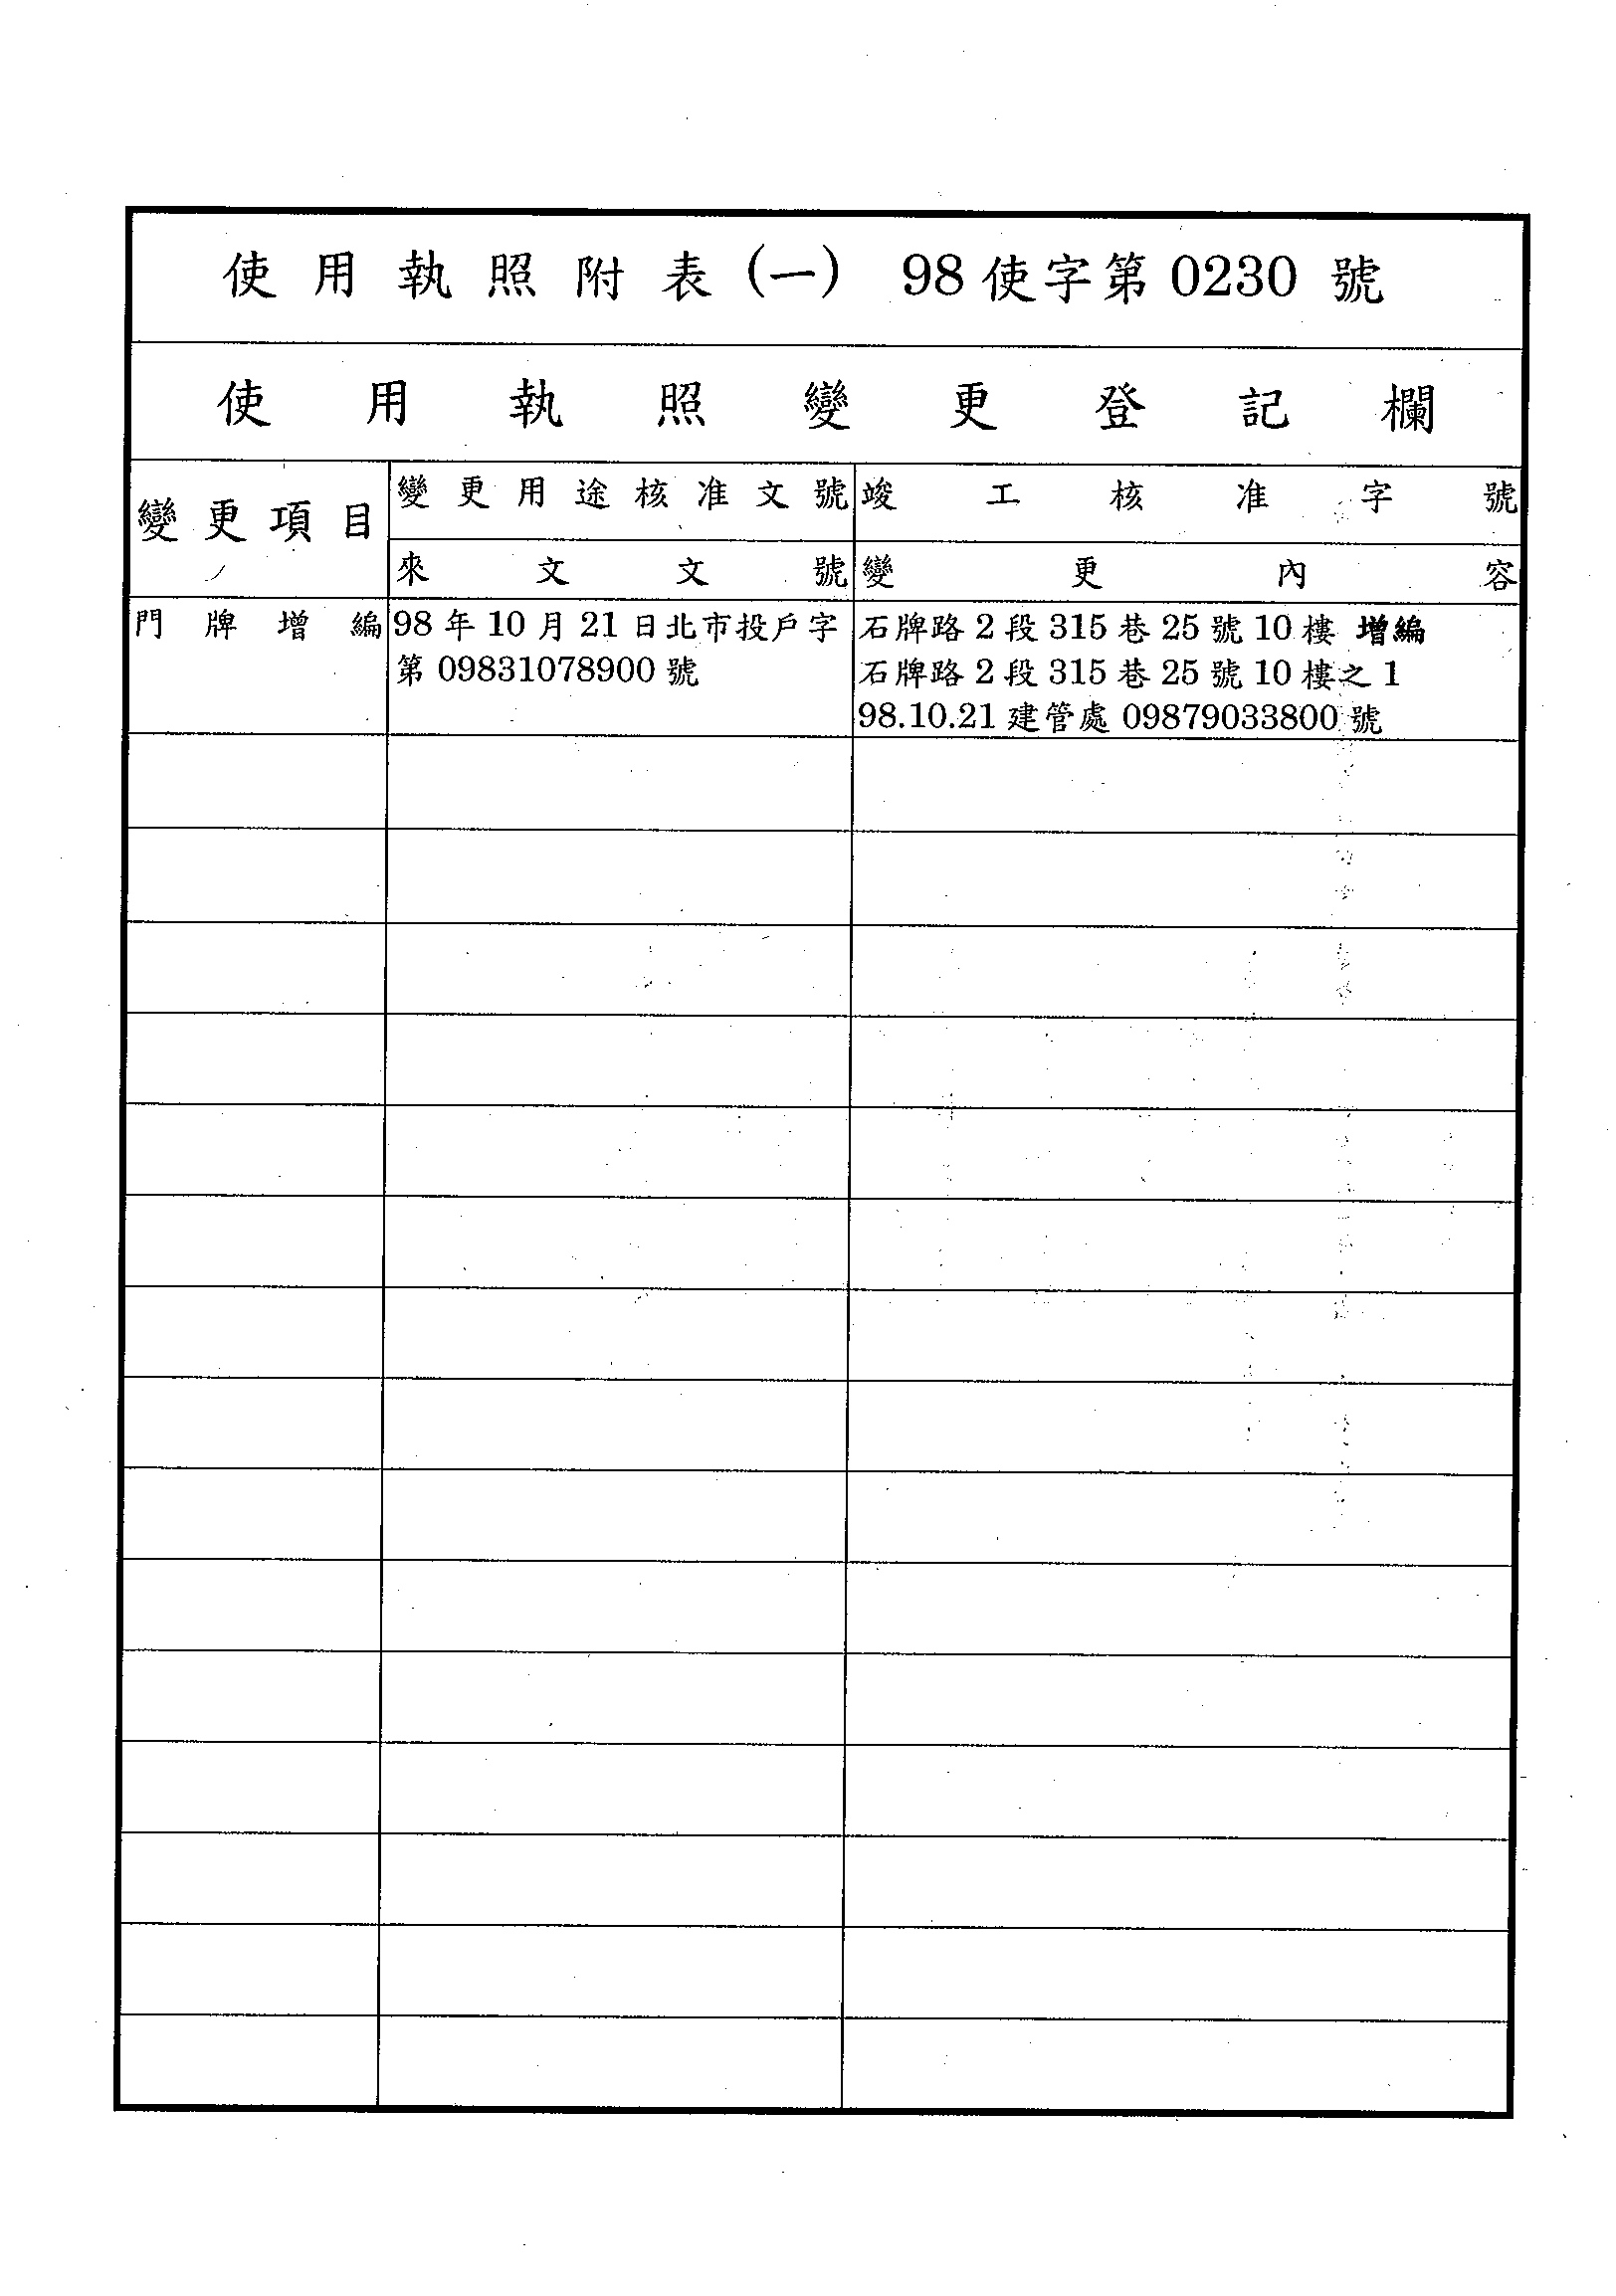 使用執照附表(一) 98使字第0230號
使用執照變更登記欄
變更項目
變更用途核准文號
竣工核准字號
來文文號
變更內容
門牌增編
98年10月21日北市投戶字
第09831078900號
石牌路2段315巷25號10樓 增編
石牌路2段315巷25號10樓之1
98.10.21建管處09879033800號